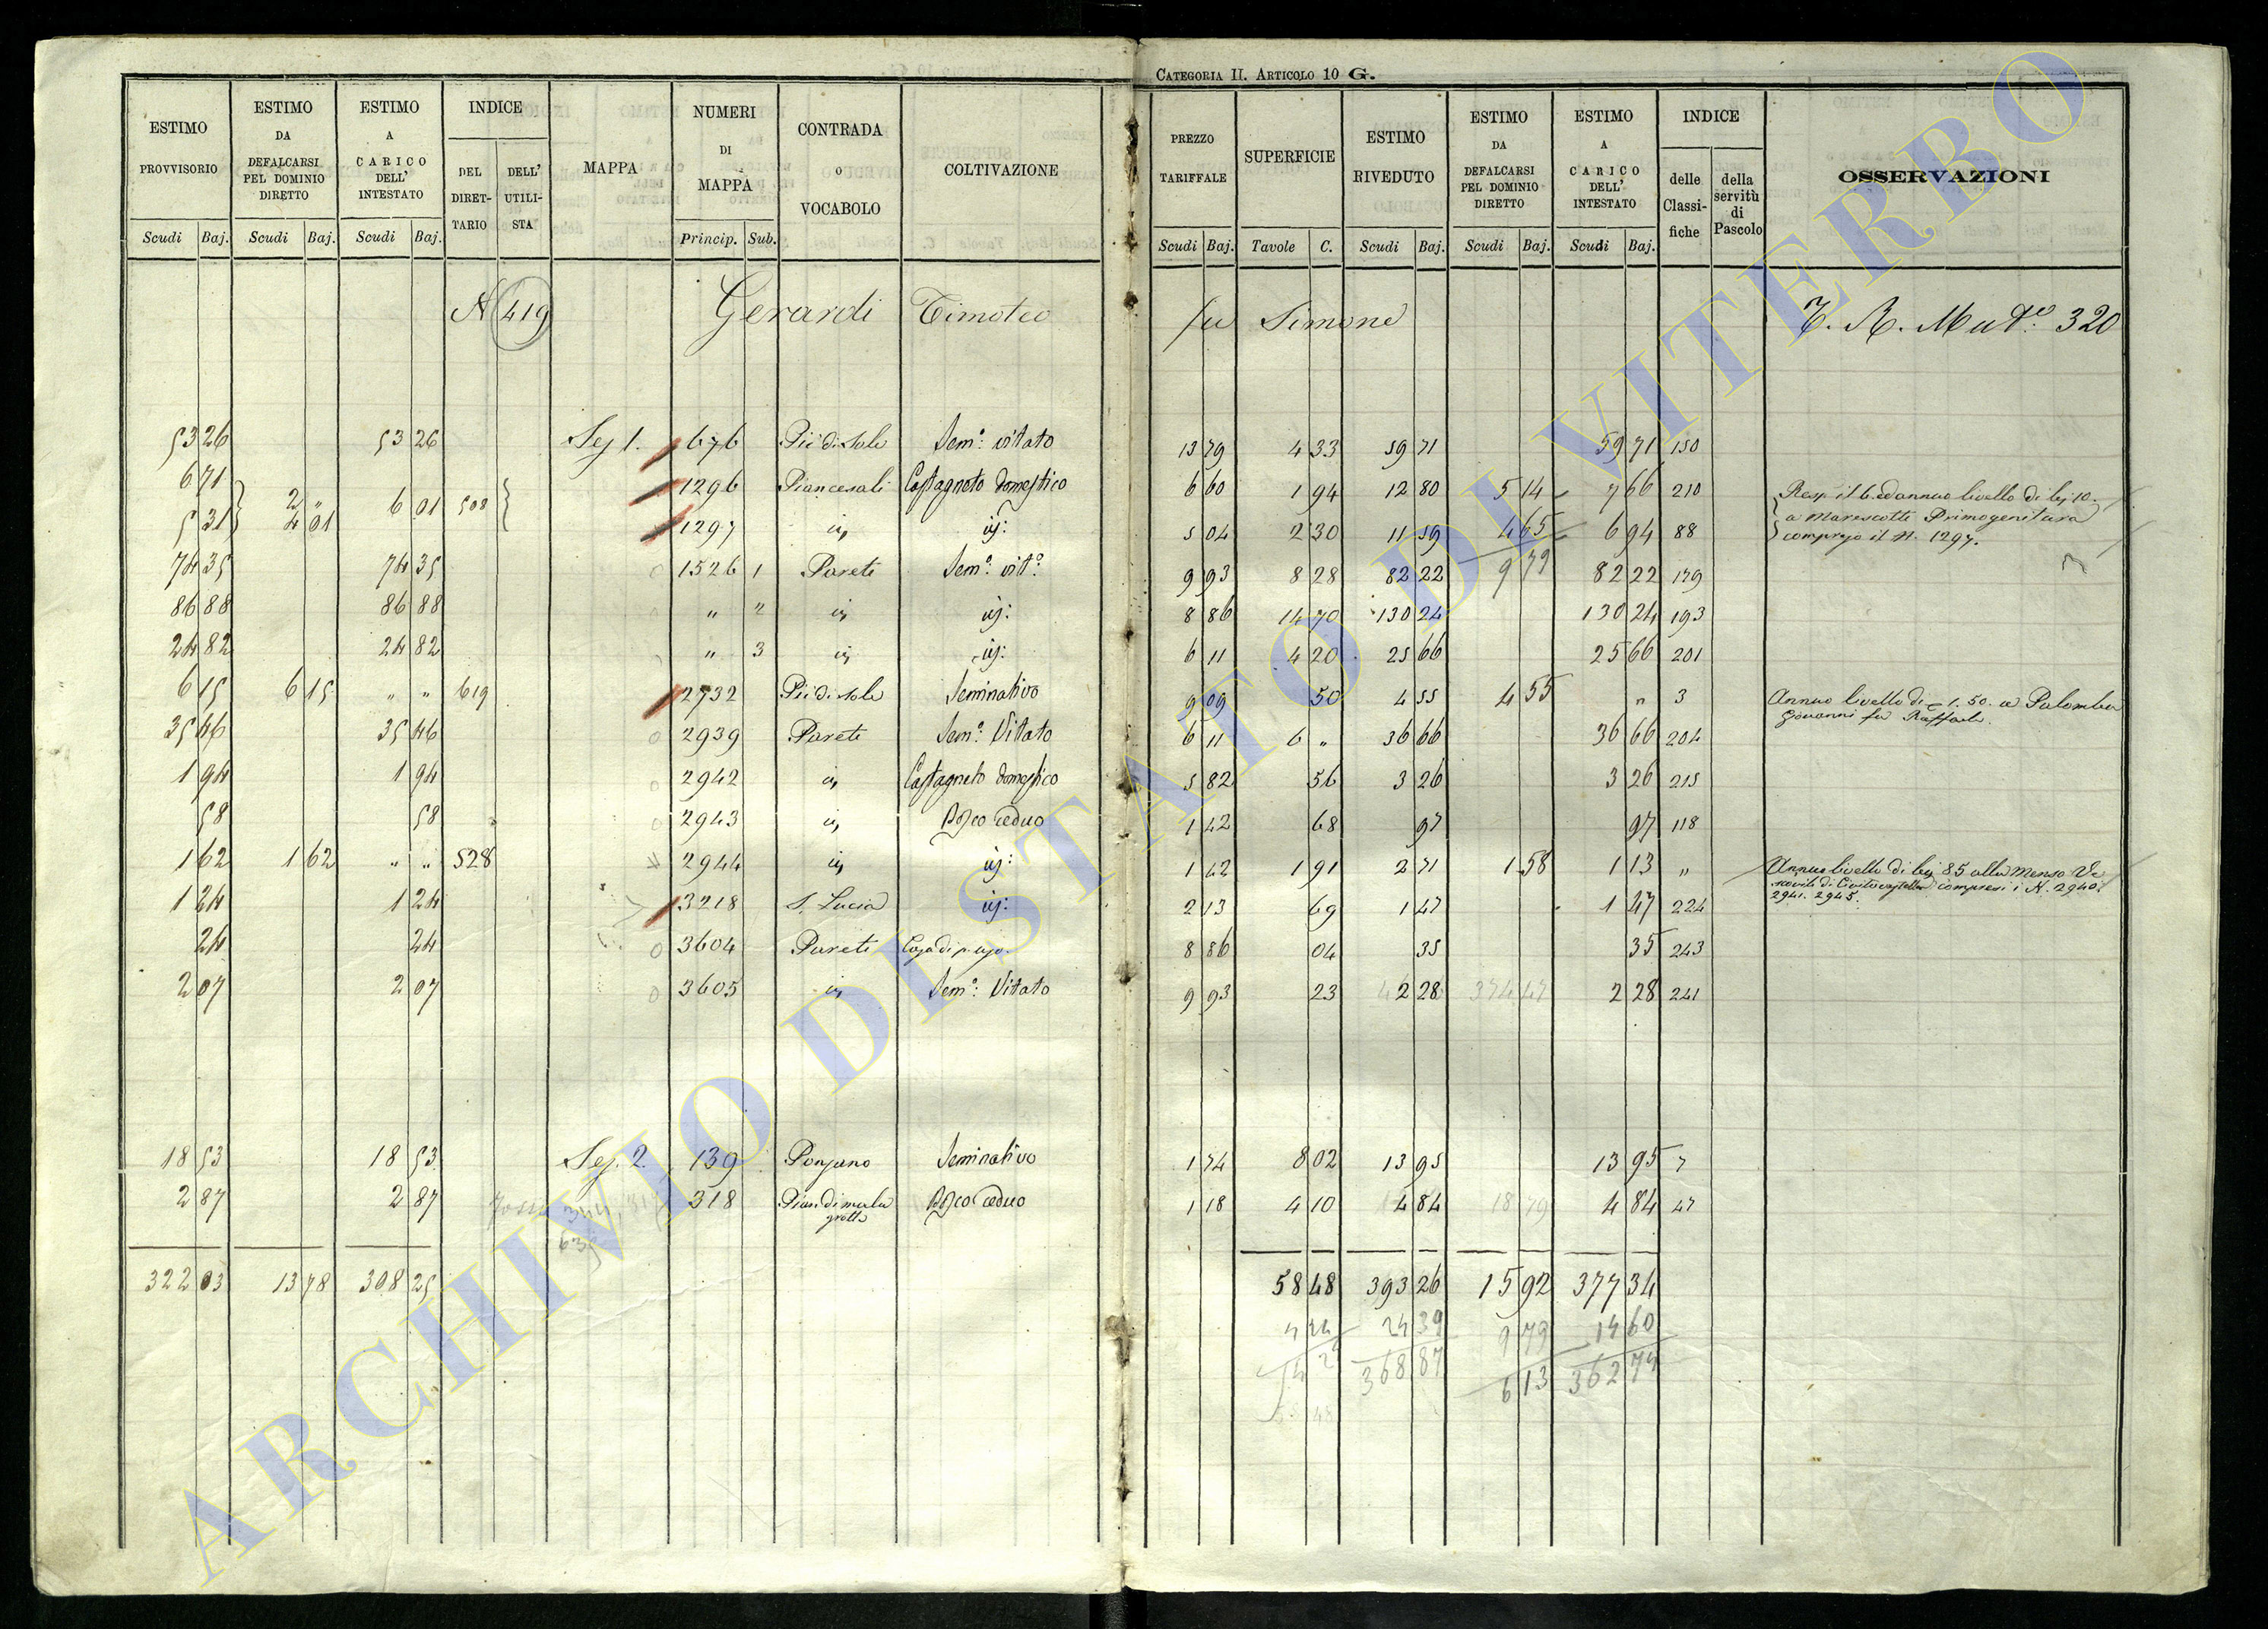 CATEGORIA II. ARTICOLO 10 G.
ESTIMO PROVVISORIO Scudi Baj.
ESTIMO DA DEFALCARSI PEL DOMINIO DIRETTO Scudi Baj.
ESTIMO A CARICO DELL' INTESTATO Scudi Baj.
INDICE DEL DIRETTARIO DELL' UTILISTA
MAPPA
NUMERI DI MAPPA Princip. Sub.
CONTRADA o VOCABOLO
COLTIVAZIONE
PREZZO TARIFFALE Scudi Baj.
SUPERFICIE Tavole C.
ESTIMO RIVEDUTO Scudi Baj.
ESTIMO DA DEFALCARSI PEL DOMINIO DIRETTO Scudi Baj.
ESTIMO A CARICO DELL' INTESTATO Scudi Baj.
INDICE delle Classifiche della servitù di Pascolo
OSSERVAZIONI
N 419 Gerardi Timoteo fu Simone 320
53 26 53 26 Sez 1. 676 Piè di Sole Sem.o vitato 13 79 4 33 59 71 59 71 150
6 71 2 " 6 01 508 1296 Piancesali Castagneto domestico 6 60 1 94 12 80 5 14 7 66 210
5 31 4 01 1297 id id: 5 04 2 30 11 59 4 65 6 94 88
9 79
a Marescotti Primogenitura
compreso il N. 1297.
74 35 74 35 1526 1 Pareti Sem.o vit.o 9 93 8 28 82 22 82 22 179
86 88 86 88 " 2 id id: 8 86 14 70 130 24 130 24 193
24 82 24 82 " 3 id id: 6 11 4 20 25 66 25 66 201
6 15 6 15 " " 619 2732 Piè di Sole Seminativo 9 09 50 4 55 4 55 " 3 Annuo livello di 1.50. a Palomba
Giovanni fu Raffaele.
35 46 35 46 2939 Pareti Sem.o Vitato 6 11 6 " 36 66 36 66 204
1 94 1 94 2942 id Castagneto domestico 5 82 56 3 26 3 26 215
58 58 2943 id Bosco ceduo 1 42 68 97 97 118
1 62 1 62 " " 528 2944 id id: 1 42 1 91 2 71 1 58 1 13 " Annuo livello di baj 85 alla Mensa Ve
scovile di Civitacastellana compresi i N. 2940.
2941. 2945.
1 24 1 24 3218 S. Lucia id: 2 13 69 1 47 1 47 224
24 24 3604 Pareti 8 86 04 35 35 243
2 07 2 07 3605 id Sem.o Vitato 9 93 23 2 28 374 47 2 28 241
18 53 18 53 Sez. 2. 139 Ponzano Seminativo 1 74 8 02 13 95 13 95 7
2 87 2 87 318 Pian di mela grotta Bosco ceduo 1 18 4 10 4 84 18 79 4 84 47
322 03 13 78 308 25 58 48 393 26 15 92 377 34
24 39 9 79 14 60
368 87 6 13 362 74
ARCHIVIO DI STATO DI VITERBO